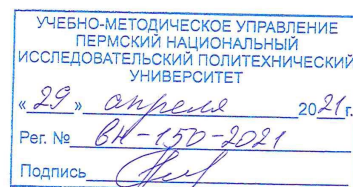 УЧЕБНО-МЕТОДИЧЕСКОЕ УПРАВЛЕНИЕ
ПЕРМСКИЙ НАЦИОНАЛЬНЫЙ
ИССЛЕДОВАТЕЛЬСКИЙ ПОЛИТЕХНИЧЕСКИЙ
УНИВЕРСИТЕТ
« 29 » апреля 2021г.
Рег. № вн-150-2021
Подпись